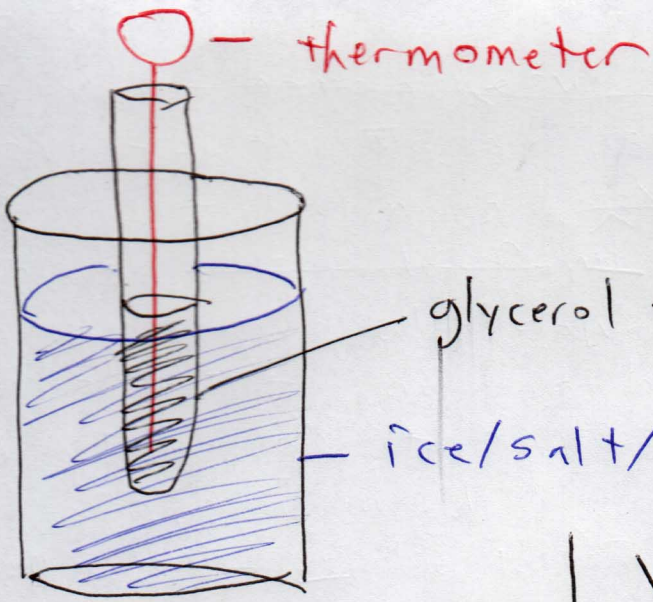 thermometer
glycerol
ice/salt/